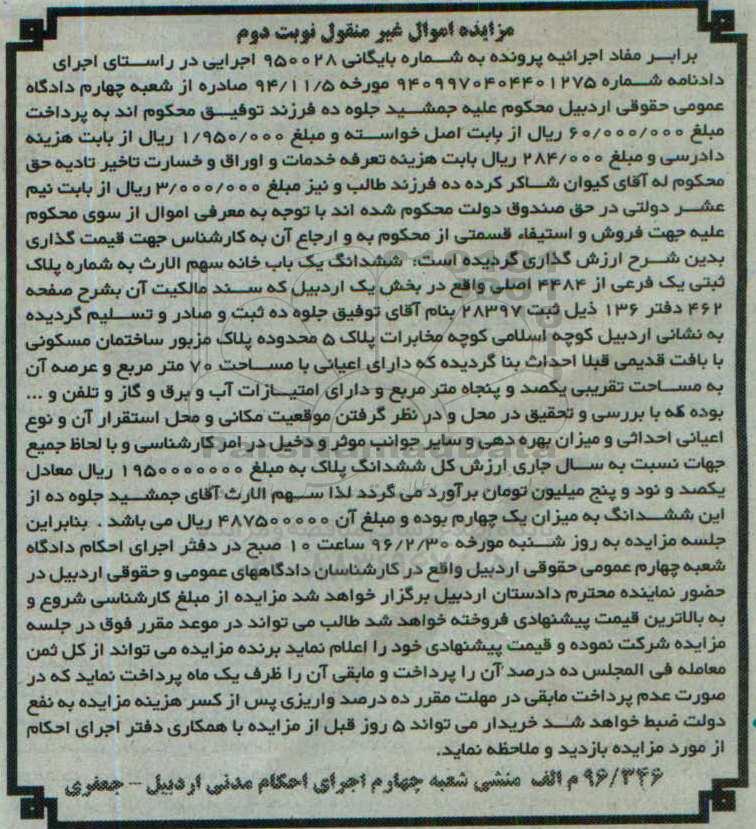 مزایده اموال غیر منقول نوبت دوم
برابر مفاد اجرائیه پرونده به شماره بایگانی ۹۵۰۰۲۸ اجرایی در راستای اجرای
دادنامه شماره ۹۴۰۹۹۷۰۴۰۴۴۰۱۲۷۵ مورخه ۹۴/۱۱/۵ صادره از شعبه چهارم دادگاه
عمومی حقوقی اردبیل محکوم علیه جمشید جلوه ده فرزند توفیق محکوم اند به پرداخت
مبلغ ۶۰/۰۰۰/۰۰۰ ریال از بابت اصل خواسته و مبلغ ۱/۹۵۰/۰۰۰ ریال از بابت هزینه
دادرسی و مبلغ ۲۸۴/۰۰۰ ریال بابت هزینه تعرفه خدمات و اوراق و خسارت تاخیر تادیه حق
محکوم له آقای کیوان شاکر کرده ده فرزند طالب و نیز مبلغ ۳/۰۰۰/۰۰۰ ریال از بابت نیم
عشر دولتی در حق صندوق دولت محکوم شده اند با توجه به معرفی اموال از سوی محکوم
علیه جهت فروش و استیفاء قسمتی از محکوم به و ارجاع آن به کارشناس جهت قیمت گذاری
بدین شرح ارزش گذاری گردیده است: ششدانگ یک باب خانه سهم الارث به شماره پلاک
ثبتی یک فرعی از ۴۴۸۴ اصلی واقع در بخش یک اردبیل که سند مالکیت آن بشرح صفحه
۴۶۲ دفتر ۱۳۶ ذیل ثبت ۲۸۳۹۷ بنام آقای توفیق جلوه ده ثبت و صادر و تسلیم گردیده
به نشانی اردبیل کوچه اسلامی کوچه مخابرات پلاک ۵ محدوده پلاک مزبور ساختمان مسکونی
با بافت قدیمی قبلا احداث بنا گردیده که دارای اعیانی با مساحت ۷۰ متر مربع و عرصه آن
به مساحت تقریبی یکصد و پنجاه متر مربع و دارای امتیازات آب و برق و گاز و تلفن و ...
بوده که با بررسی و تحقیق در محل و در نظر گرفتن موقعیت مکانی و محل استقرار آن و نوع
اعیانی احداثی و میزان بهره دهی و سایر جوانب موثر و دخیل در امر کارشناسی و با لحاظ جمیع
جهات نسبت به سال جاری ارزش کل ششدانگ پلاک به مبلغ ۱۹۵۰۰۰۰۰۰۰ ریال معادل
یکصد و نود و پنج میلیون تومان برآورد می گردد لذا سهم الارث آقای جمشید جلوه ده از
این ششدانگ به میزان یک چهارم بوده و مبلغ آن ۴۸۷۵۰۰۰۰۰ ریال می باشد . بنابراین
جلسه مزایده به روز شنبه مورخه ۹۶/۲/۳۰ ساعت ۱۰ صبح در دفتر اجرای احکام دادگاه
شعبه چهارم عمومی حقوقی اردبیل واقع در کارشناسان دادگاههای عمومی و حقوقی اردبیل در
حضور نماینده محترم دادستان اردبیل برگزار خواهد شد مزایده از مبلغ کارشناسی شروع و
به بالاترین قیمت پیشنهادی فروخته خواهد شد طالب می تواند در موعد مقرر فوق در جلسه
مزایده شرکت نموده و قیمت پیشنهادی خود را اعلام نماید برنده مزایده می تواند از کل ثمن
معامله فی المجلس ده درصد آن را پرداخت و مابقی آن را ظرف یک ماه پرداخت نماید که در
صورت عدم پرداخت مابقی در مهلت مقرر ده درصد واریزی پس از کسر هزینه مزایده به نفع
دولت ضبط خواهد شد خریدار می تواند ۵ روز قبل از مزایده با همکاری دفتر اجرای احکام
از مورد مزایده بازدید و ملاحظه نماید.
۹۶/۳۴۶ م الف منشی شعبه چهارم اجرای احکام مدنی اردبیل – جعفری